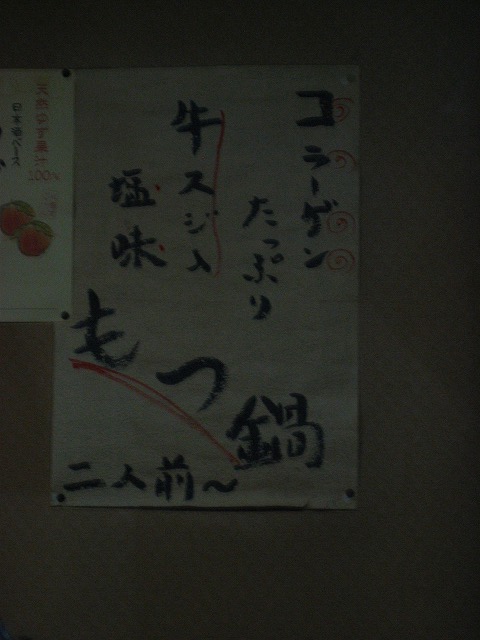 コラーゲン
たっぷり
牛スジ入
塩味
もつ鍋
二人前〜
100%
日本酒ベース